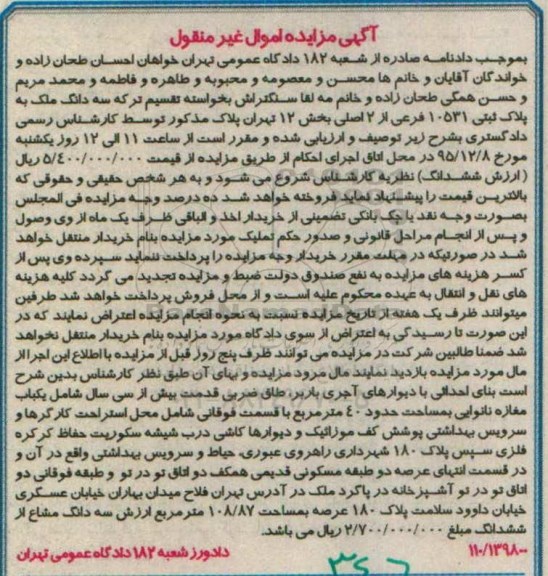 آگهی مزایده اموال غیر منقول
بموجب دادنامه صادره از شعبه ۱۸۲ دادگاه عمومی تهران خواهان احسان طحان زاده و
خواندگان آقایان و خانم ها محسن و معصومه و محبوبه و طاهره و فاطمه و محمد مریم
و حسن همگی طحان زاده و خانم مه لقا سنکتراش بخواسته تقسیم ترکه سه دانگ ملک به
پلاک ثبتی ۱۰۵۳۱ فرعی از ۲ اصلی بخش ۱۲ تهران پلاک مذکور توسط کارشناس رسمی
دادگستری بشرح زیر توصیف و ارزیابی شده و مقرر است از ساعت ۱۱ الی ۱۲ روز یکشنبه
مورخ ۹۵/۱۲/۸ در محل اتاق اجرای احکام از طریق مزایده از قیمت ۵/۴۰۰/۰۰۰/۰۰۰ ریال
(ارزش ششدانگ) نظریه کارشناس شروع می شود و به هر شخص حقیقی و حقوقی که
بالاترین قیمت را پیشنهاد نماید فروخته خواهد شد ده درصد وجه مزایده فی المجلس
بصورت وجه نقد یا چک بانکی تضمینی از خریدار اخذ و الباقی ظرف یک ماه از وی وصول
و پس از انجام مراحل قانونی و صدور حکم تملیک مورد مزایده بنام خریدار منتقل خواهد
شد در صورتیکه در مهلت مقرر خریدار وجه مزایده را پرداخت ننماید سپرده وی پس از
کسر هزینه های مزایده به نفع صندوق دولت ضبط و مزایده تجدید می گردد کلیه هزینه
های نقل و انتقال به عهده محکوم علیه است و از محل فروش پرداخت خواهد شد طرفین
میتوانند ظرف یک هفته از تاریخ مزایده نسبت به نحوه انجام مزایده اعتراض نمایند که در
این صورت تا رسیدگی به اعتراض از سوی دادگاه مورد مزایده بنام خریدار منتقل نخواهد
شد ضمنا طالبین شرکت در مزایده می توانند ظرف پنج روز قبل از مزایده با اطلاع این اجرا از
مال مورد مزایده بازدید نمایند مال مورد مزایده و بهای آن طبق نظر کارشناس بدین شرح
است بنای احداثی با دیوارهای آجری باربر طاق ضربی قدمت بیش از سی سال شامل یکباب
مغازه نانوایی بمساحت حدود ۴۰ مترمربع با قسمت فوقانی شامل محل استراحت کارگرها و
سرویس بهداشتی پوشش کف موزائیک و دیوارها کاشی درب شیشه سکوریت حفاظ کرکره
فلزی سپس پلاک ۱۸۰ شهرداری راهروی عبوری، حیاط و سرویس بهداشتی واقع در آن و
در قسمت انتهای عرصه دو طبقه مسکونی قدیمی همکف دو اتاق تو در تو و طبقه فوقانی دو
اتاق تو در تو آشپزخانه در پاگرد ملک در آدرس تهران فلاح میدان بهاران خیابان عسکری
خیابان داوود سلامت پلاک ۱۸۰ عرصه بمساحت ۱۰۸/۸۷ مترمربع ارزش سه دانگ مشاع از
ششدانگ مبلغ ۲/۷۰۰/۰۰۰/۰۰۰ ریال می باشد.
۱۱۰/۱۳۹۸۰۰ دادورز شعبه ۱۸۲ دادگاه عمومی تهران